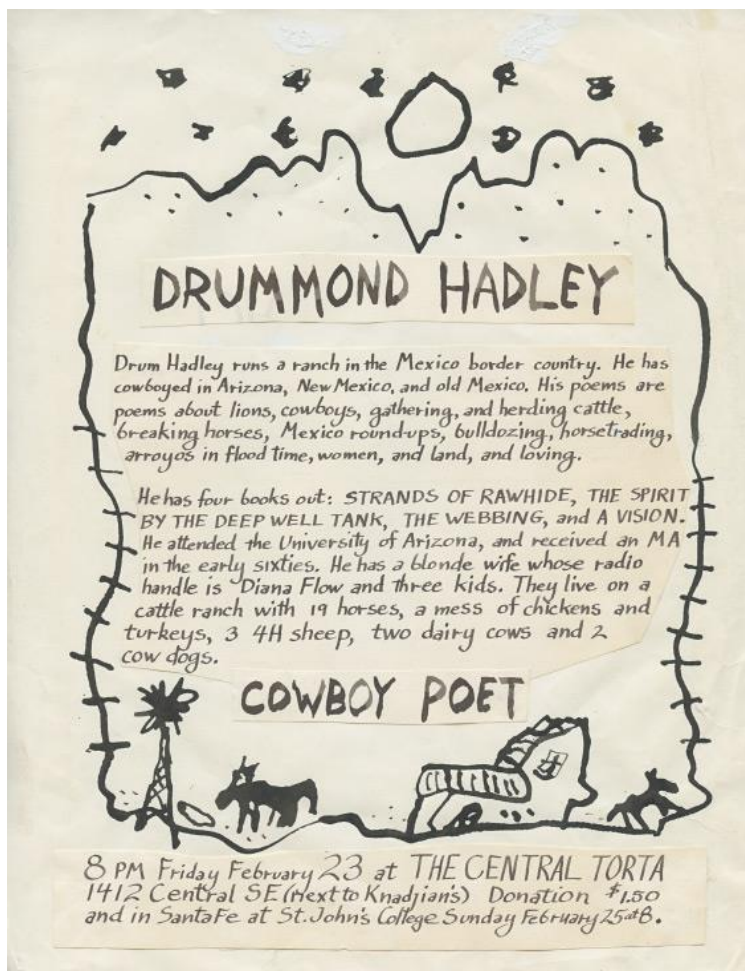 DRUMMOND HADLEY
Drum Hadley runs a ranch in the Mexico border country. He has
cowboyed in Arizona, New Mexico, and old Mexico. His poems are
poems about lions, cowboys, gathering, and herding cattle,
breaking horses, Mexico round-ups, bulldozing, horsetrading,
arroyos in flood time, women, and land, and loving.
He has four books out: STRANDS OF RAWHIDE, THE SPIRIT
BY THE DEEP WELL TANK, THE WEBBING, and A VISION.
He attended the University of Arizona, and received an MA
in the early sixties. He has a blonde wife whose radio
handle is Diana Flow and three kids. They live on a
cattle ranch with 19 horses, a mess of chickens and
turkeys, 3 4H sheep, two dairy cows and 2
cow dogs.
COWBOY POET
8 PM Friday February 23 at THE CENTRAL TORTA
1412 Central SE (next to Knadjian's) Donation $1.50
and in Santa Fe at St. John's College Sunday February 25 at 8.